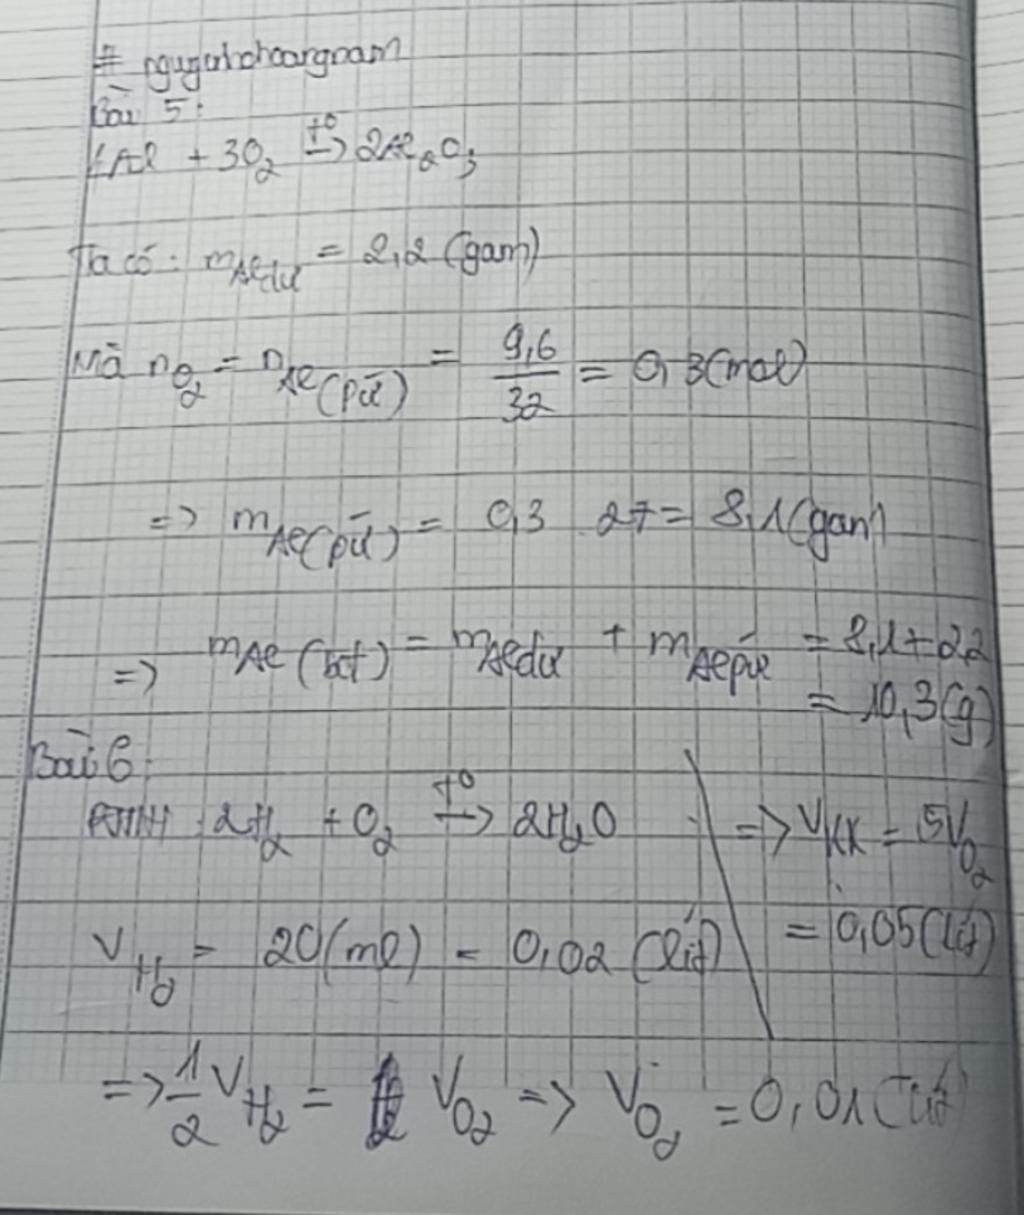 # nguyenhoangnam
Bài 5:
4Al + 3O₂ →(t⁰) 2Al₂O₃
Ta có: m_Al dư = 2,2 (gam)
Mà n_O₂ = n_Al(pư) = 9,6/32 = 0,3 (mol)
=> m_Al(pư) = 0,3 . 27 = 8,1 (gam)
=> m_Al (bđ) = m_Al dư + m_Al pư = 8,1 + 2,2
= 10,3 (g)
Bài 6:
PTHH: 2H₂ + O₂ →(t⁰) 2H₂O
V_H₂ = 20 (ml) = 0,02 (lít)
=> 1/2 V_H₂ = V_O₂ => V_O₂ = 0,01 (lít)
=> V_KK = 5V_O₂
= 0,05 (lít)